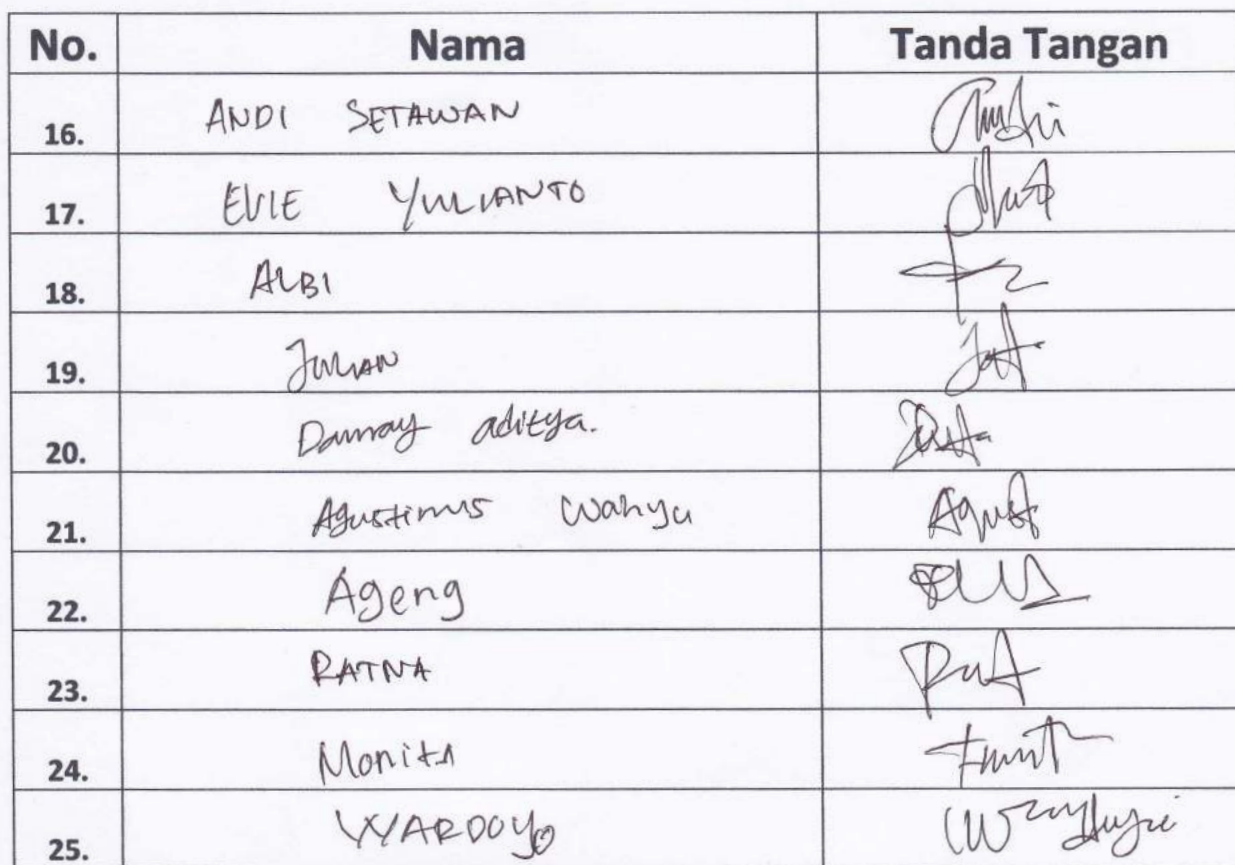 No. Nama Tanda Tangan
16. ANDI SETAWAN Andri
17. EVIE YULIANTO
18. ALBI
19. JULIAN
20. aditya.
21. Agustinus Wahyu Agust
22. Ageng
23. RATNA
24. Monita
25. WARDOYO